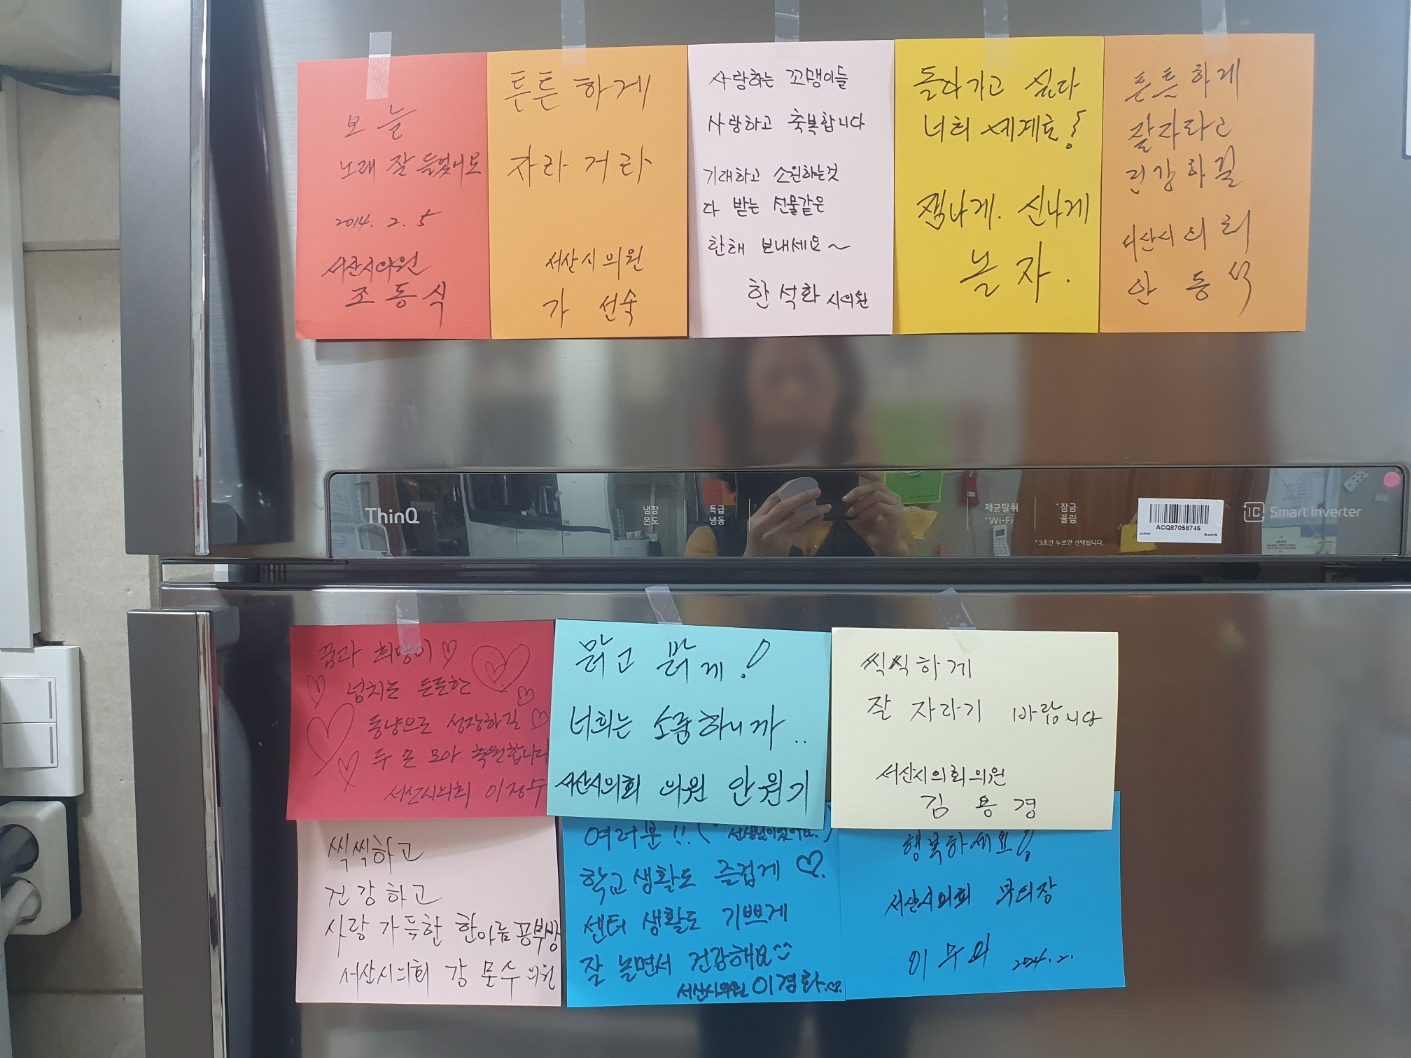 오늘
노래 잘 들었어요
2014. 2. 5
서산시의원
조동식
튼튼하게
자라거라
서산시의원
가선숙
사랑하는 꼬맹이들
사랑하고 축복합니다
기대하고 소원하는것
다 받는 선물같은
한해 보내세요~
한석화 시의원
돌다가고 싶다
너희 세계로!
잼나게. 신나게
놀자.
튼튼하게
잘자라고
건강하길
서산시의회
안동석
ThinQ
냉장
온도
특급
냉동
제균탈취
*Wi-Fi
*잠금
풀림
* 3초간 누르면 선택됩니다.
ACQ87058745
Smart Inverter
꿈과 희망이 ♡
넘치는 든든한
동냥으로 성장하길 ♡
두 손 모아 축원합니다
서산시의회 이정수
맑고 밝게!
너희는 소중하니까..
서산시의회 의원 안원기
씩씩하게
잘 자라기 바랍니다
서산시의회의원
김용경
씩씩하고
건강하고
사랑 가득한 한아름공부방
서산시의회 강문수 의원
여러분!!
학교생활도 즐겁게 ♡.
센터 생활도 기쁘게
잘 놀면서 건강해요
서산시의원 이경화
행복하세요!
서산시의회 부의장
이수의 2024. 2.